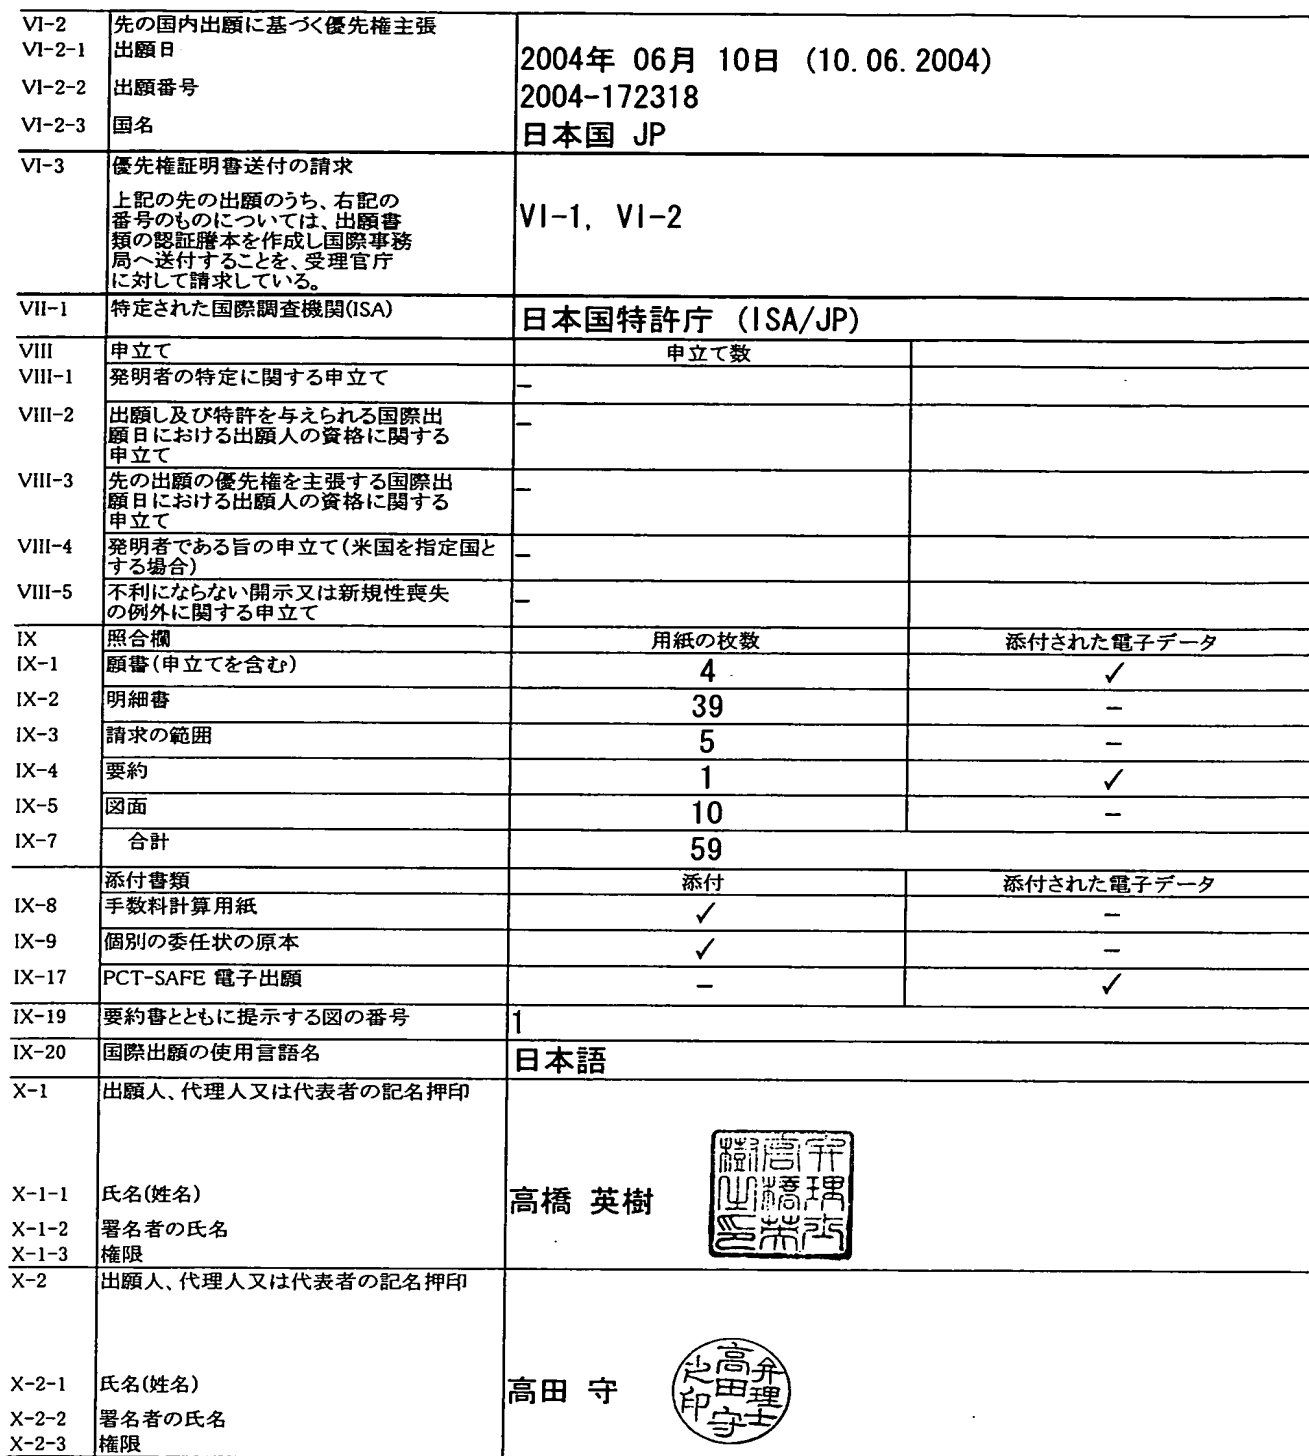 VI-2 先の国内出願に基づく優先権主張
VI-2-1 出願日 2004年 06月 10日 (10.06.2004)
VI-2-2 出願番号 2004-172318
VI-2-3 国名 日本国 JP
VI-3 優先権証明書送付の請求
上記の先の出願のうち、右記の
番号のものについては、出願書
類の認証謄本を作成し国際事務
局へ送付することを、受理官庁
に対して請求している。
VI-1, VI-2
VII-1 特定された国際調査機関(ISA) 日本国特許庁 (ISA/JP)
VIII 申立て 申立て数
VIII-1 発明者の特定に関する申立て –
VIII-2 出願し及び特許を与えられる国際出
願日における出願人の資格に関する
申立て
–
VIII-3 先の出願の優先権を主張する国際出
願日における出願人の資格に関する
申立て
–
VIII-4 発明者である旨の申立て(米国を指定国と
する場合)
–
VIII-5 不利にならない開示又は新規性喪失
の例外に関する申立て
–
IX 照合欄 用紙の枚数 添付された電子データ
IX-1 願書(申立てを含む) 4 ✓
IX-2 明細書 39 –
IX-3 請求の範囲 5 –
IX-4 要約 1 ✓
IX-5 図面 10 –
IX-7 合計 59
添付書類 添付 添付された電子データ
IX-8 手数料計算用紙 ✓ –
IX-9 個別の委任状の原本 ✓ –
IX-17 PCT-SAFE 電子出願 – ✓
IX-19 要約書とともに提示する図の番号 1
IX-20 国際出願の使用言語名 日本語
X-1 出願人、代理人又は代表者の記名押印
X-1-1 氏名(姓名) 高橋 英樹
弁理士
高橋英
樹之印
X-1-2 署名者の氏名
X-1-3 権限
X-2 出願人、代理人又は代表者の記名押印
X-2-1 氏名(姓名) 高田 守
弁理士
高田守
之印
X-2-2 署名者の氏名
X-2-3 権限